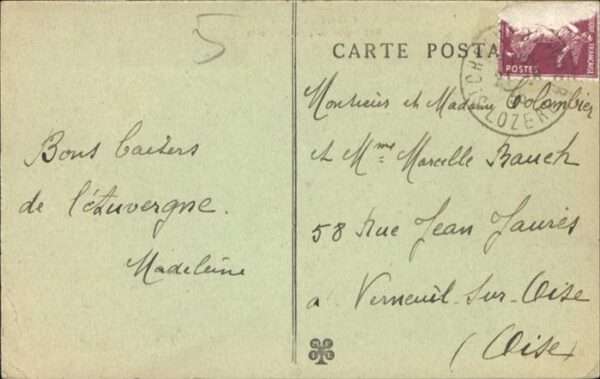 5
CARTE POSTA
POSTES
LOZERE
Bons baisers
de l'Auvergne.
Madeleine
Monsieur et Madame Colombier
et Mme Marcelle Bauch
58 Rue Jean Jaurès
a Verneuil-sur-Oise
(Oise)